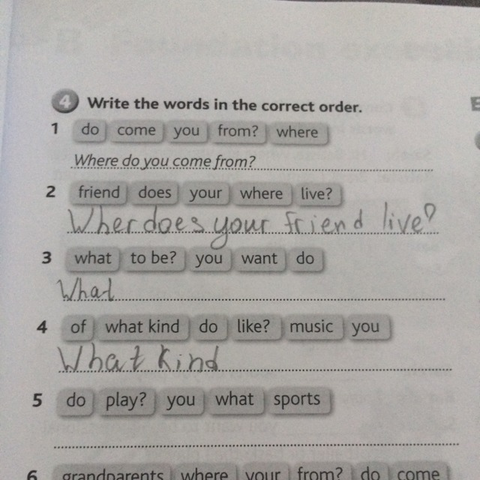 4 Write the words in the correct order.
1 do come you from? where
Where do you come from?
2 friend does your where live?
Wher does your friend live?
3 what to be? you want do
What
4 of what kind do like? music you
What kind
5 do play? you what sports
6 grandparents where your from? do come